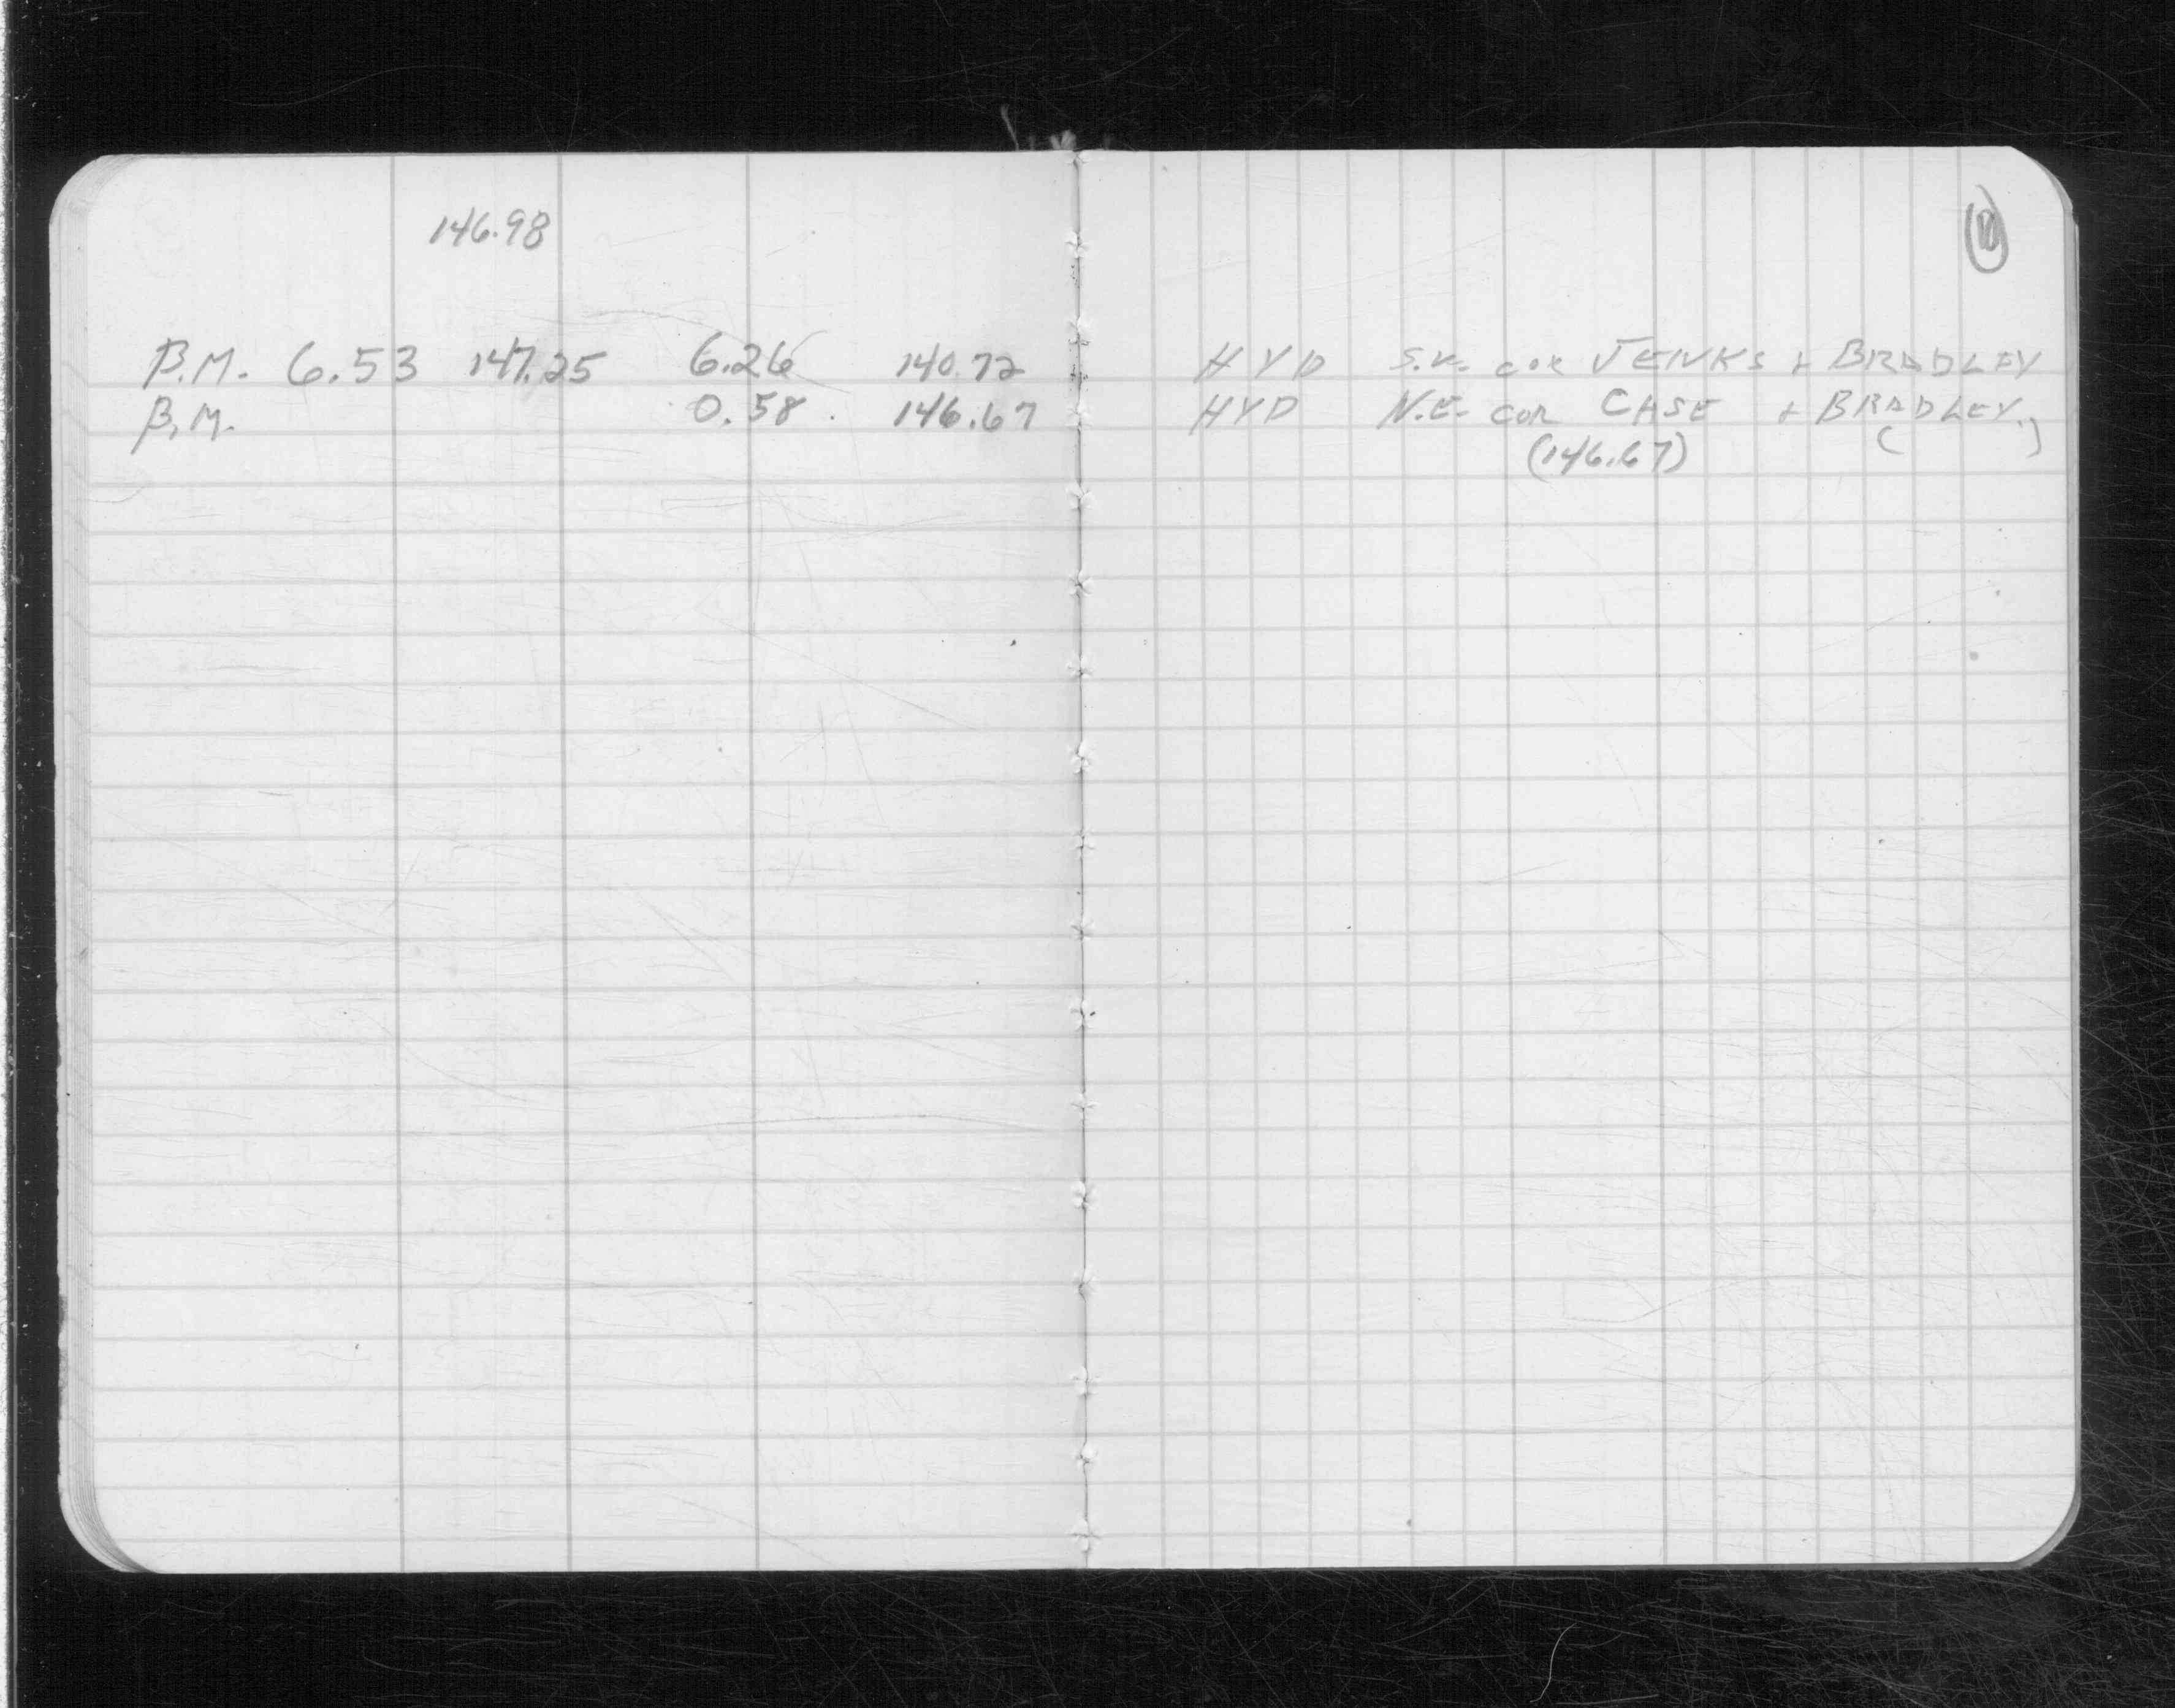 146.98
B.M. 6.53 147.25 6.26 140.72 HYD S.W. cor JENKS + BRADLEY
B.M. 0.58 146.67 HYD N.E. cor CASE + BRADLEY.
(146.67) ( )